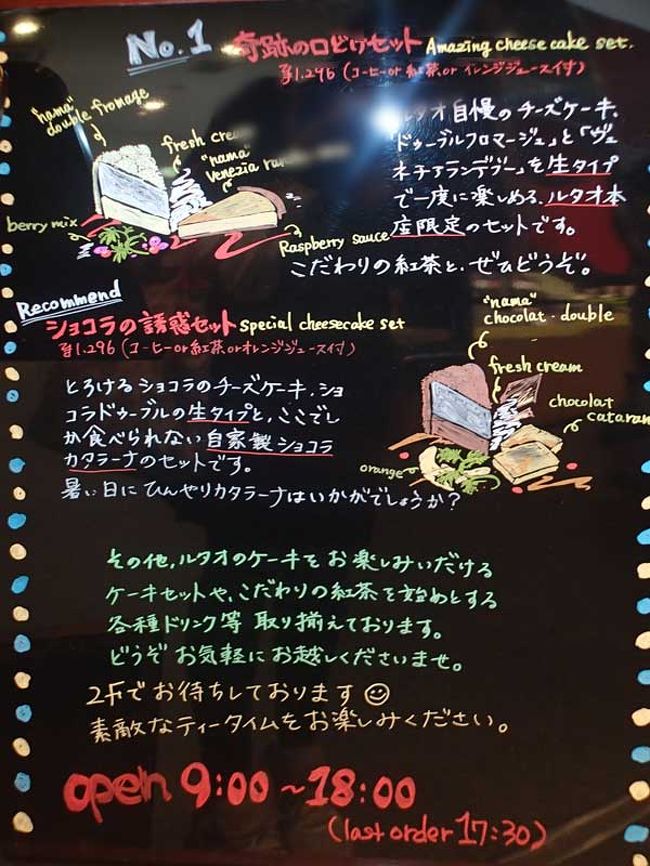 No.1 奇跡の口どけセット Amazing cheese cake set.
¥1,296 (コーヒー or 紅茶 or オレンジジュース付)
"nama" double fromage
fresh cream
"nama" Venezia
berry mix
Raspberry sauce
ルタオ自慢のチーズケーキ、
「ドゥーブルフロマージュ」と「ヴェ
ネチアランデヴー」を生タイプ
で一度に楽しめる、ルタオ本
店限定のセットです。
こだわりの紅茶と、ぜひどうぞ。
Recommend
ショコラの誘惑セット special cheesecake set
¥1,296 (コーヒー or 紅茶 or オレンジジュース付)
とろけるショコラのチーズケーキ、ショ
コラドゥーブルの生タイプと、ここでし
か食べられない自家製ショコラ
カタラーナのセットです。
暑い日にひんやりカタラーナはいかがでしょうか?
"nama"
chocolat・double
fresh cream
chocolat
cataran
orange
その他、ルタオのケーキをお楽しみいだける
ケーキセットや、こだわりの紅茶を始めとする
各種ドリンク等 取り揃えております。
どうぞ お気軽にお越しくださいませ。
2Fでお待ちしております☺
素敵なティータイムをお楽しみください。
open 9:00~18:00
(last order 17:30)